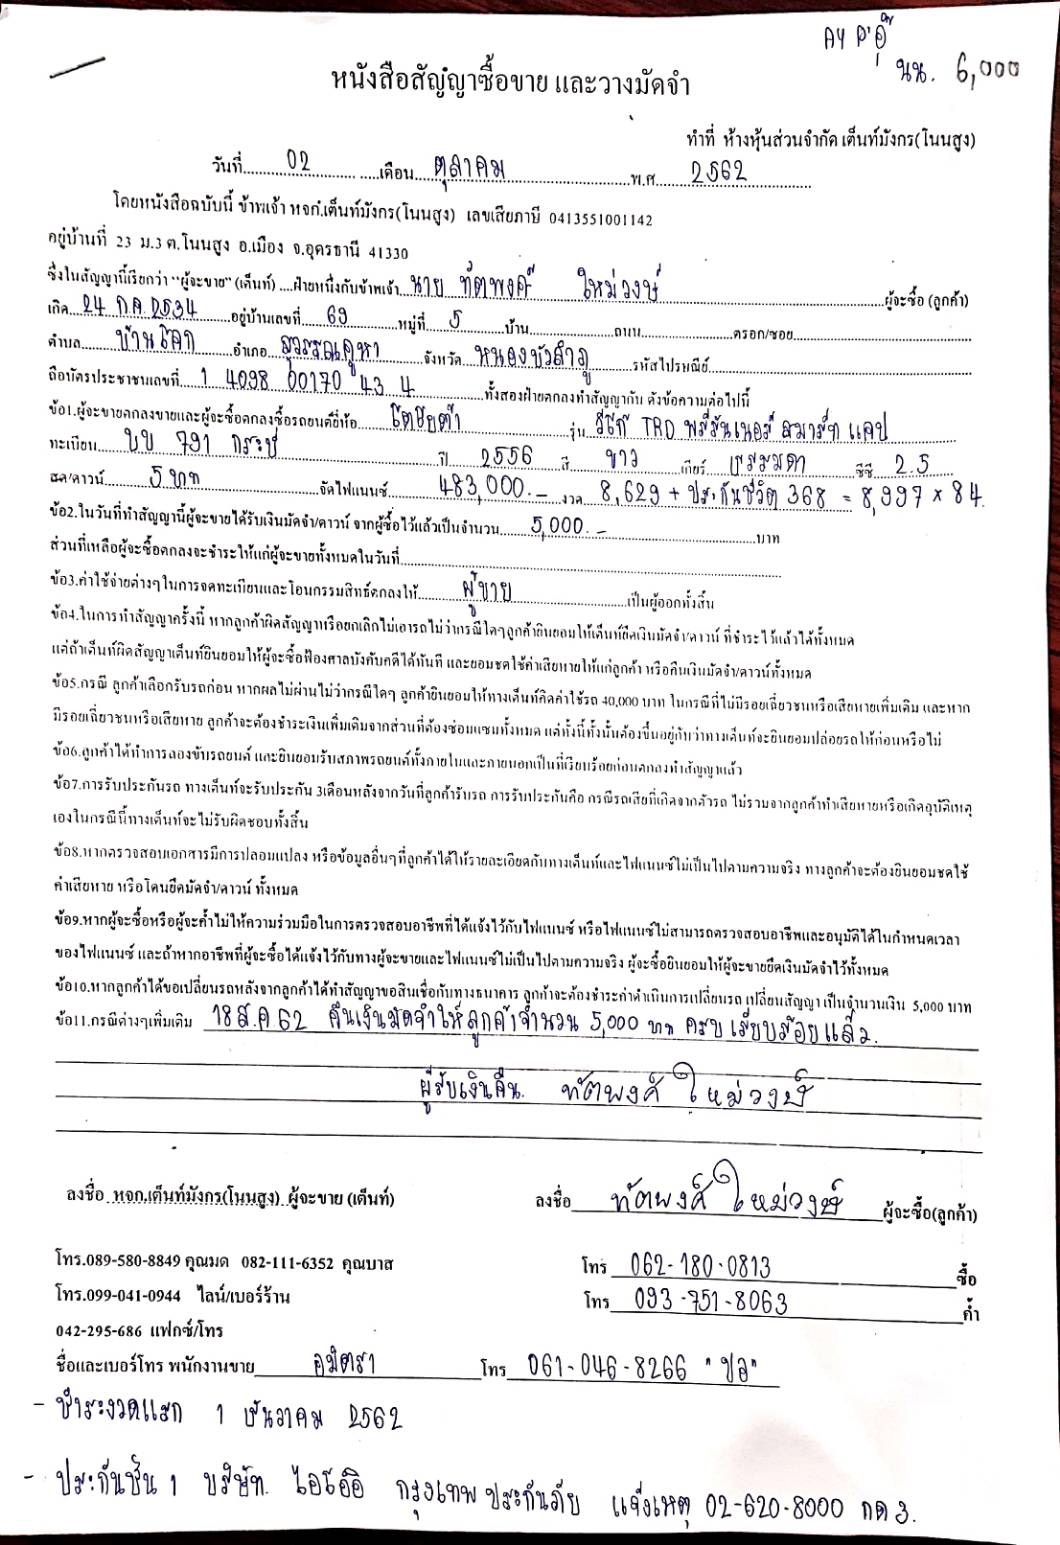 AY P'อู๊
นน. 6,000
หนังสือสัญญาซื้อขาย และวางมัดจำ
ทำที่ ห้างหุ้นส่วนจำกัด เต็นท์มังกร(โนนสูง)
วันที่ 02 เดือน ตุลาคม พ.ศ 2562
โดยหนังสือฉบับนี้ ข้าพเจ้า หจก.เต็นท์มังกร(โนนสูง) เลขเสียภาษี 0413551001142
อยู่บ้านที่ 23 ม.3 ต.โนนสูง อ.เมือง จ.อุดรธานี 41330
ซึ่งในสัญญานี้เรียกว่า "ผู้จะขาย" (เต็นท์) ....ฝ่ายหนึ่งกับข้าพเจ้า นาย ทัตพงศ์ ใหม่วงษ์ ผู้จะซื้อ (ลูกค้า)
เกิด 24 กค 2534 อยู่บ้านเลขที่ 69 หมู่ที่ 5 บ้าน ถนน ตรอก/ซอย
ตำบล บ้านโคก อำเภอ สุวรรณคูหา จังหวัด หนองบัวลำภู รหัสไปรษณีย์
ถือบัตรประชาชนเลขที่ 1 4098 00170 43 4 ทั้งสองฝ่ายตกลงทำสัญญากัน ดังข้อความต่อไปนี้
ข้อ1.ผู้จะขายตกลงขายและผู้จะซื้อตกลงซื้อรถยนต์ยี่ห้อ โตโยต้า รุ่น วีโก้ TRD พรีรันเนอร์ สมาร์ท แคป
ทะเบียน บบ 791 กระบี่ ปี 2556 สี ขาว เกียร์ ธรรมดา ซีซี 2.5
สด/ดาวน์ 5 บาท จัดไฟแนนซ์ 483,000.- งวด 8,629 + ประกันชีวิต 368 = 8,997 x 84.
ข้อ2.ในวันที่ทำสัญญานี้ผู้จะขายได้รับเงินมัดจำ/ดาวน์ จากผู้ซื้อไว้แล้วเป็นจำนวน 5,000.- บาท
ส่วนที่เหลือผู้จะซื้อตกลงจะชำระให้แก่ผู้จะขายทั้งหมดในวันที่
ข้อ3.ค่าใช้จ่ายต่างๆในการจดทะเบียนและโอนกรรมสิทธ์ตกลงให้ ผู้ขาย เป็นผู้ออกทั้งสิ้น
ข้อ4.ในการทำสัญญาครั้งนี้ หากลูกค้าผิดสัญญาหรือยกเลิกไม่เอารถไม่ว่ากรณีใดๆลูกค้ายินยอมให้เต็นท์ยึดเงินมัดจำ/ดาวน์ ที่ชำระไว้แล้วได้ทั้งหมด
แต่ถ้าเต็นท์ผิดสัญญาเต็นท์ยินยอมให้ผู้จะซื้อฟ้องศาลบังคับคดีได้ทันที และยอมชดใช้ค่าเสียหายให้แก่ลูกค้า หรือคืนเงินมัดจำ/ดาวน์ทั้งหมด
ข้อ5.กรณี ลูกค้าเลือกรับรถก่อน หากผลไม่ผ่านไม่ว่ากรณีใดๆ ลูกค้ายินยอมให้ทางเต็นท์คิดค่าใช้รถ 40,000 บาท ในกรณีที่ไม่มีรอยเฉี่ยวชนหรือเสียหายเพิ่มเติม และหาก
มีรอยเฉี่ยวชนหรือเสียหาย ลูกค้าจะต้องชำระเงินเพิ่มเติมจากส่วนที่ต้องซ่อมแซมทั้งหมด แต่ทั้งนี้ทั้งนั้นต้องขึ้นอยู่กับว่าทางเต็นท์จะยินยอมปล่อยรถให้ก่อนหรือไม่
ข้อ6.ลูกค้าได้ทำการลองขับรถยนต์ และยินยอมรับสภาพรถยนต์ทั้งภายในและภายนอกเป็นที่เรียบร้อยก่อนตกลงทำสัญญาแล้ว
ข้อ7.การรับประกันรถ ทางเต็นท์จะรับประกัน 3เดือนหลังจากวันที่ลูกค้ารับรถ การรับประกันคือ กรณีรถเสียที่เกิดจากตัวรถ ไม่รวมจากลูกค้าทำเสียหายหรือเกิดอุบัติเหตุ
เองในกรณีนี้ทางเต็นท์จะไม่รับผิดชอบทั้งสิ้น
ข้อ8.หากตรวจสอบเอกสารมีการปลอมแปลง หรือข้อมูลอื่นๆที่ลูกค้าได้ให้รายละเอียดกับทางเต็นท์และไฟแนนซ์ไม่เป็นไปตามความจริง ทางลูกค้าจะต้องยินยอมชดใช้
ค่าเสียหาย หรือโดนยึดมัดจำ/ดาวน์ ทั้งหมด
ข้อ9.หากผู้จะซื้อหรือผู้จะค้ำไม่ให้ความร่วมมือในการตรวจสอบอาชีพที่ได้แจ้งไว้กับไฟแนนซ์ หรือไฟแนนซ์ไม่สามารถตรวจสอบอาชีพและอนุมัติได้ในกำหนดเวลา
ของไฟแนนซ์ และถ้าหากอาชีพที่ผู้จะซื้อได้แจ้งไว้กับทางผู้จะขายและไฟแนนซ์ไม่เป็นไปตามความจริง ผู้จะซื้อยินยอมให้ผู้จะขายยึดเงินมัดจำไว้ทั้งหมด
ข้อ10.หากลูกค้าได้ขอเปลี่ยนรถหลังจากลูกค้าได้ทำสัญญาขอสินเชื่อกับทางธนาคาร ลูกค้าจะต้องชำระค่าดำเนินการเปลี่ยนรถ เปลี่ยนสัญญา เป็นจำนวนเงิน 5,000 บาท
ข้อ11.กรณีต่างๆเพิ่มเติม 18 ส.ค. 62 คืนเงินมัดจำให้ลูกค้าจำนวน 5,000 บาท ครบ เรียบร้อยแล้ว.
ผู้รับเงินคืน. ทัตพงศ์ ใหม่วงษ์
ลงชื่อ หจก.เต็นท์มังกร(โนนสูง) ผู้จะขาย (เต็นท์) ลงชื่อ ทัตพงศ์ ใหม่วงษ์ ผู้จะซื้อ(ลูกค้า)
โทร.089-580-8849 คุณมด 082-111-6352 คุณบาส โทร 062-180-0813 ซื้อ
โทร.099-041-0944 ไลน์/เบอร์ร้าน โทร 093-751-8063 ค้ำ
042-295-686 แฟกซ์/โทร
ชื่อและเบอร์โทร พนักงานขาย อมิตรา โทร 061-046-8266 "ปอ"
- ชำระงวดแรก 1 ธันวาคม 2562
- ประกันชั้น 1 บริษัท. ไอโออิ กรุงเทพ ประกันภัย แจ้งเหตุ 02-620-8000 กด 3.